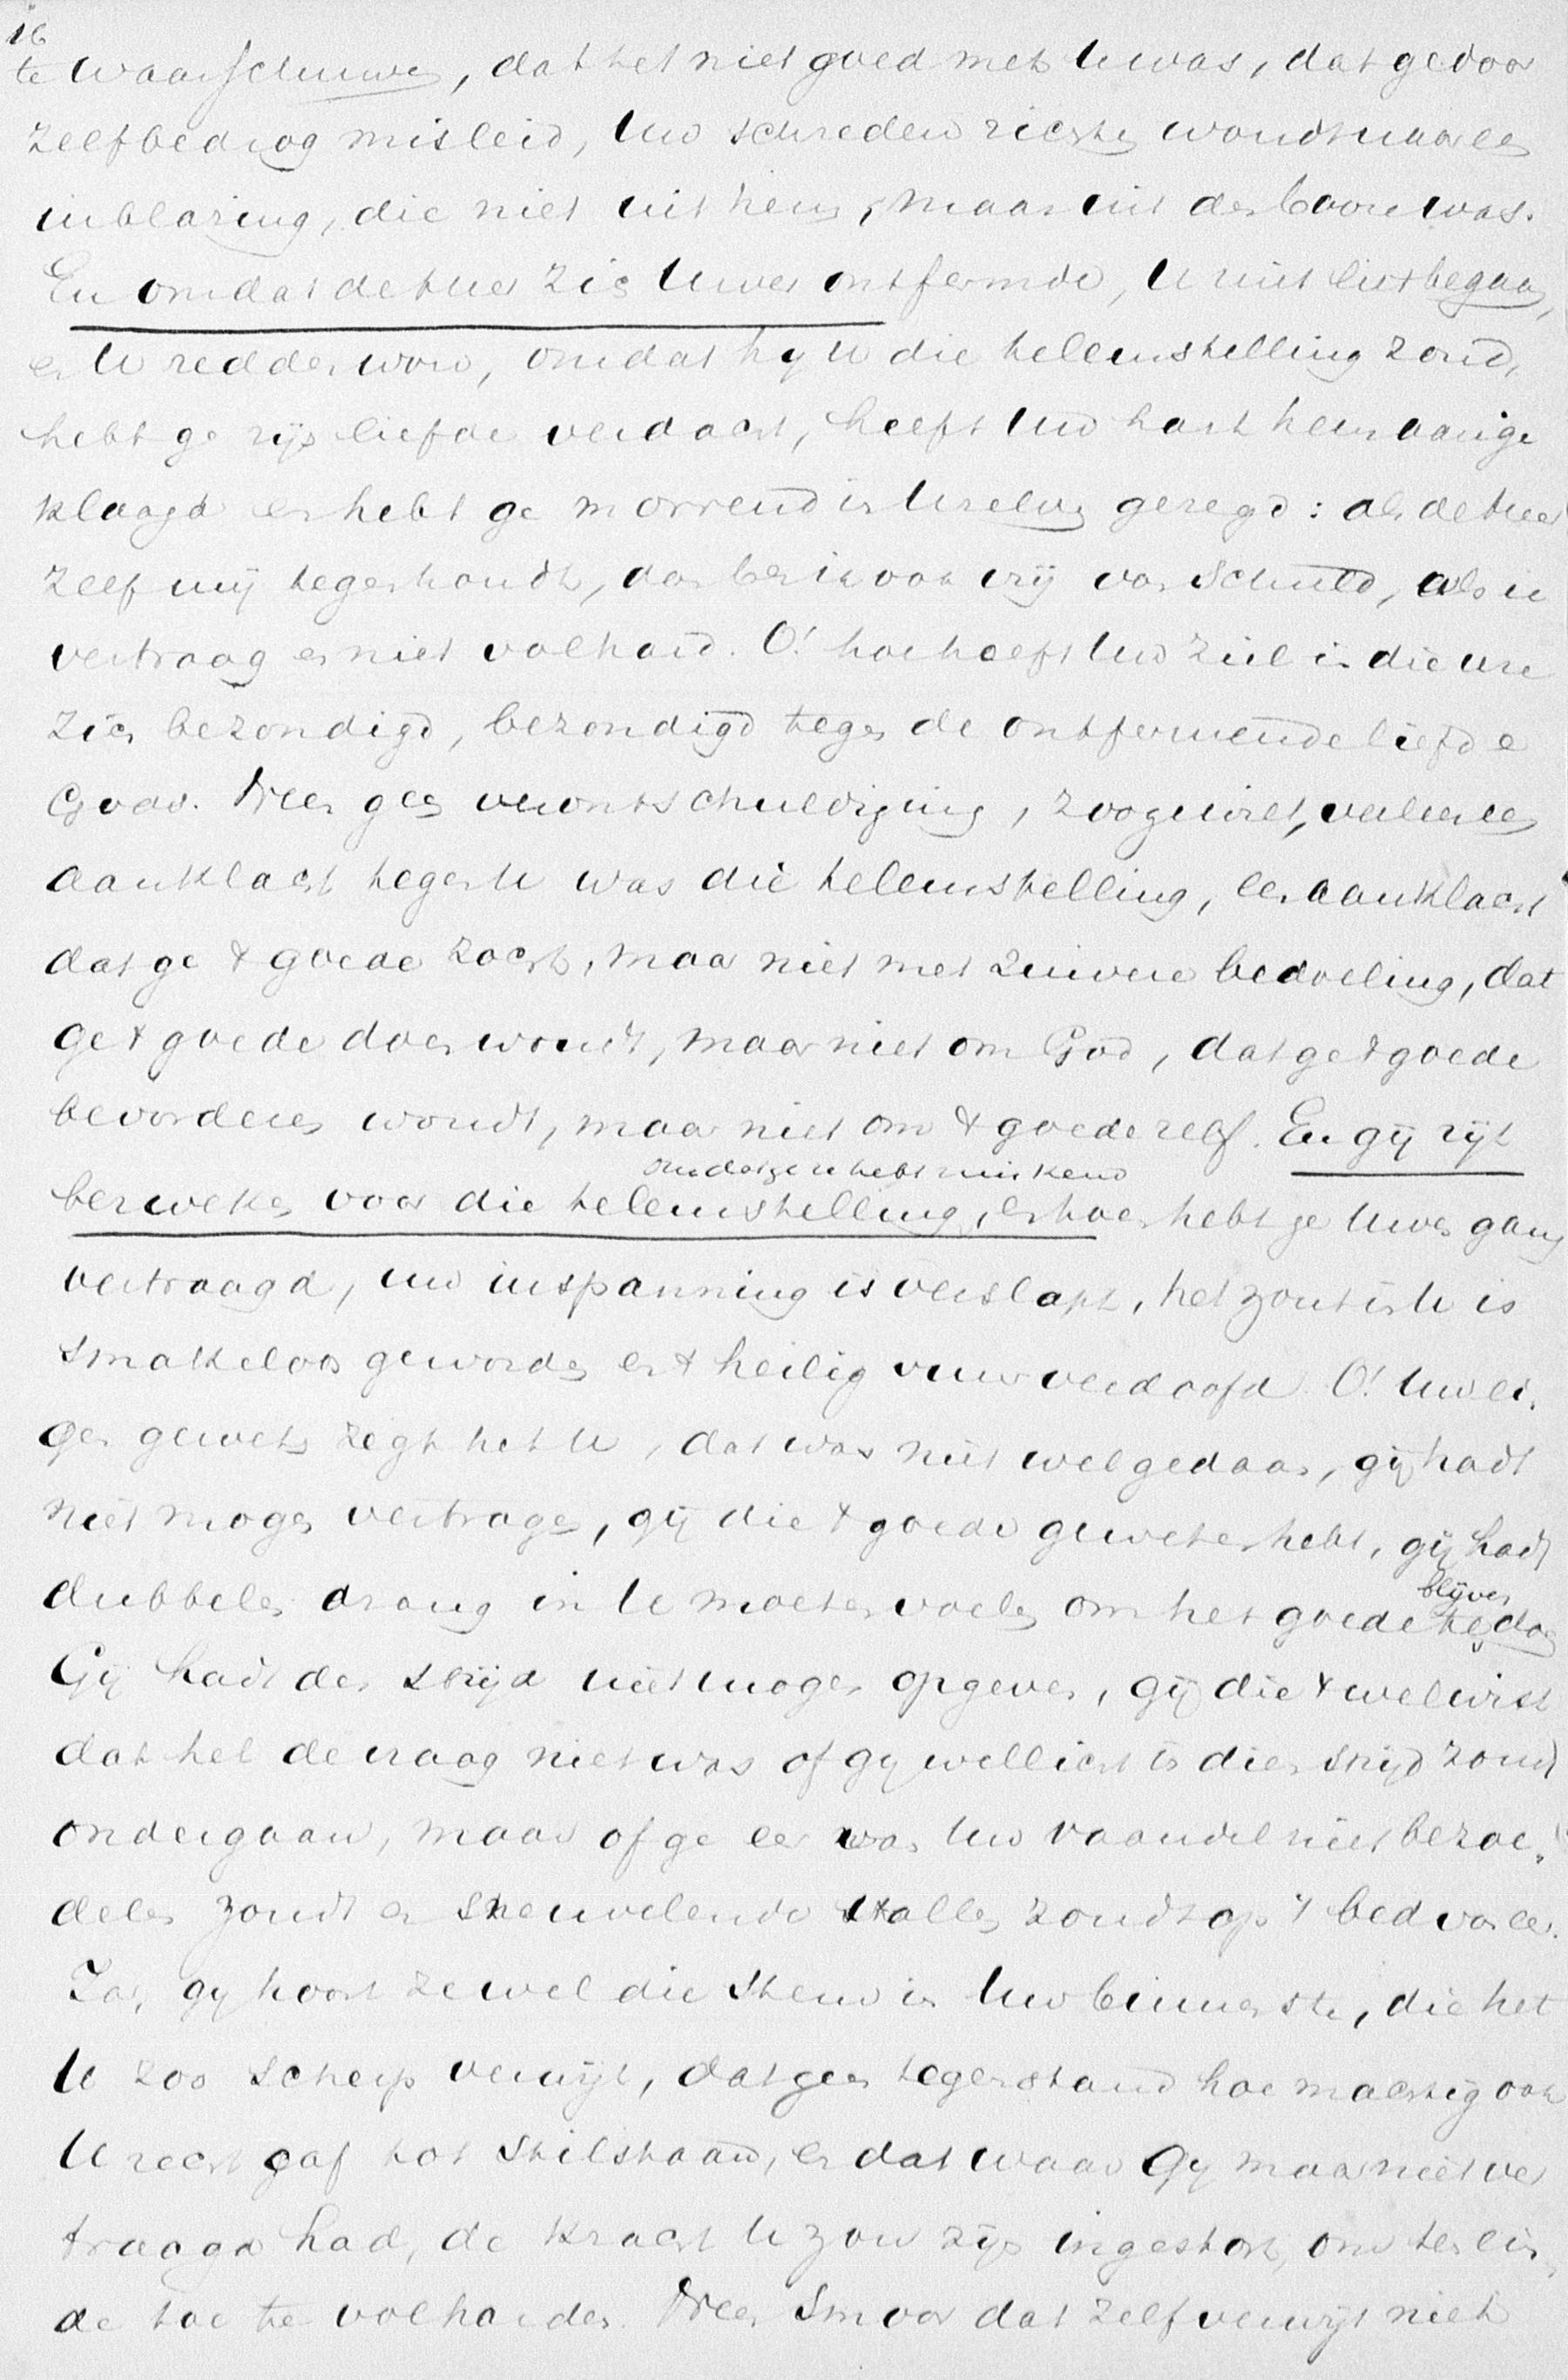 16
te waarschuwen, dat het niet goed met U was, dat ge door
zelfbedrog misleid, Uw schreden richten woudt naar een
inblazing, die niet uit hem, maar uit den booze was.
En omdat de Heer zich Uwer ontfermde, U niet liet begaan,
en U redden wou, omdat hy U die teleurstelling zond,
hebt ge zijn liefde verdacht, heeft Uw hart hem aange
klaagd en hebt ge morrend in Uzelven gezegd: als de Heer
zelf mij tegenhoudt, dan ben ik ook vrij van schuld, als ik
vertraag en niet volhard. O! hoe heeft Uw ziel in die ure
zich bezondigd, bezondigd tegen de ontfermende liefde
Gods. Neen geen verontschuldiging, zoo ge wilt, veeleer een
aanklacht tegen U was die teleurstelling, een aanklacht
dat ge 't goede zocht, maar niet met zuivere bedoeling, dat
ge 't goede doen woudt, maar niet om God, dat ge 't goede
bevorderen woudt, maar niet om 't goede zelf. En gij zijt
omdat ge U hebt miskend
bezweken voor die teleurstelling, en hoe hebt ge Uwen gang
vertraagd, uw inspanning is verslapt, het zout in U is
smakeloos geworden en 't heilig vuur verdoofd. O! Uw ei-
gen geweten zegt het U, dat was niet welgedaan, gij hadt
niet mogen vertragen, gij die 't goede geweten hebt, gij hadt
dubbelen drang in U moeten voelen om het goede te doen
blijven
Gij hadt den strijd niet mogen opgeven, gij die 't wel wist
dat het de vraag niet was of gy wellicht in dien strijd zoudt
ondergaan, maar of ge eer was Uw vaandel niet bezoe-
delen zoudt en sneuvelende stallen zoudt op 't bed van eer.
Ja, gy hoort ze wel die stem in Uw binnenste, die het
U zoo scherp verwijt, dat geen tegenstand hoe machtig ook
U recht gaf tot stilstaan, en dat waar gy maar niet ver
traagd had, de kracht U zou zijn ingestort, om ten ein-
de toe te volharden. Neen smoor dat zelfverwijt niet